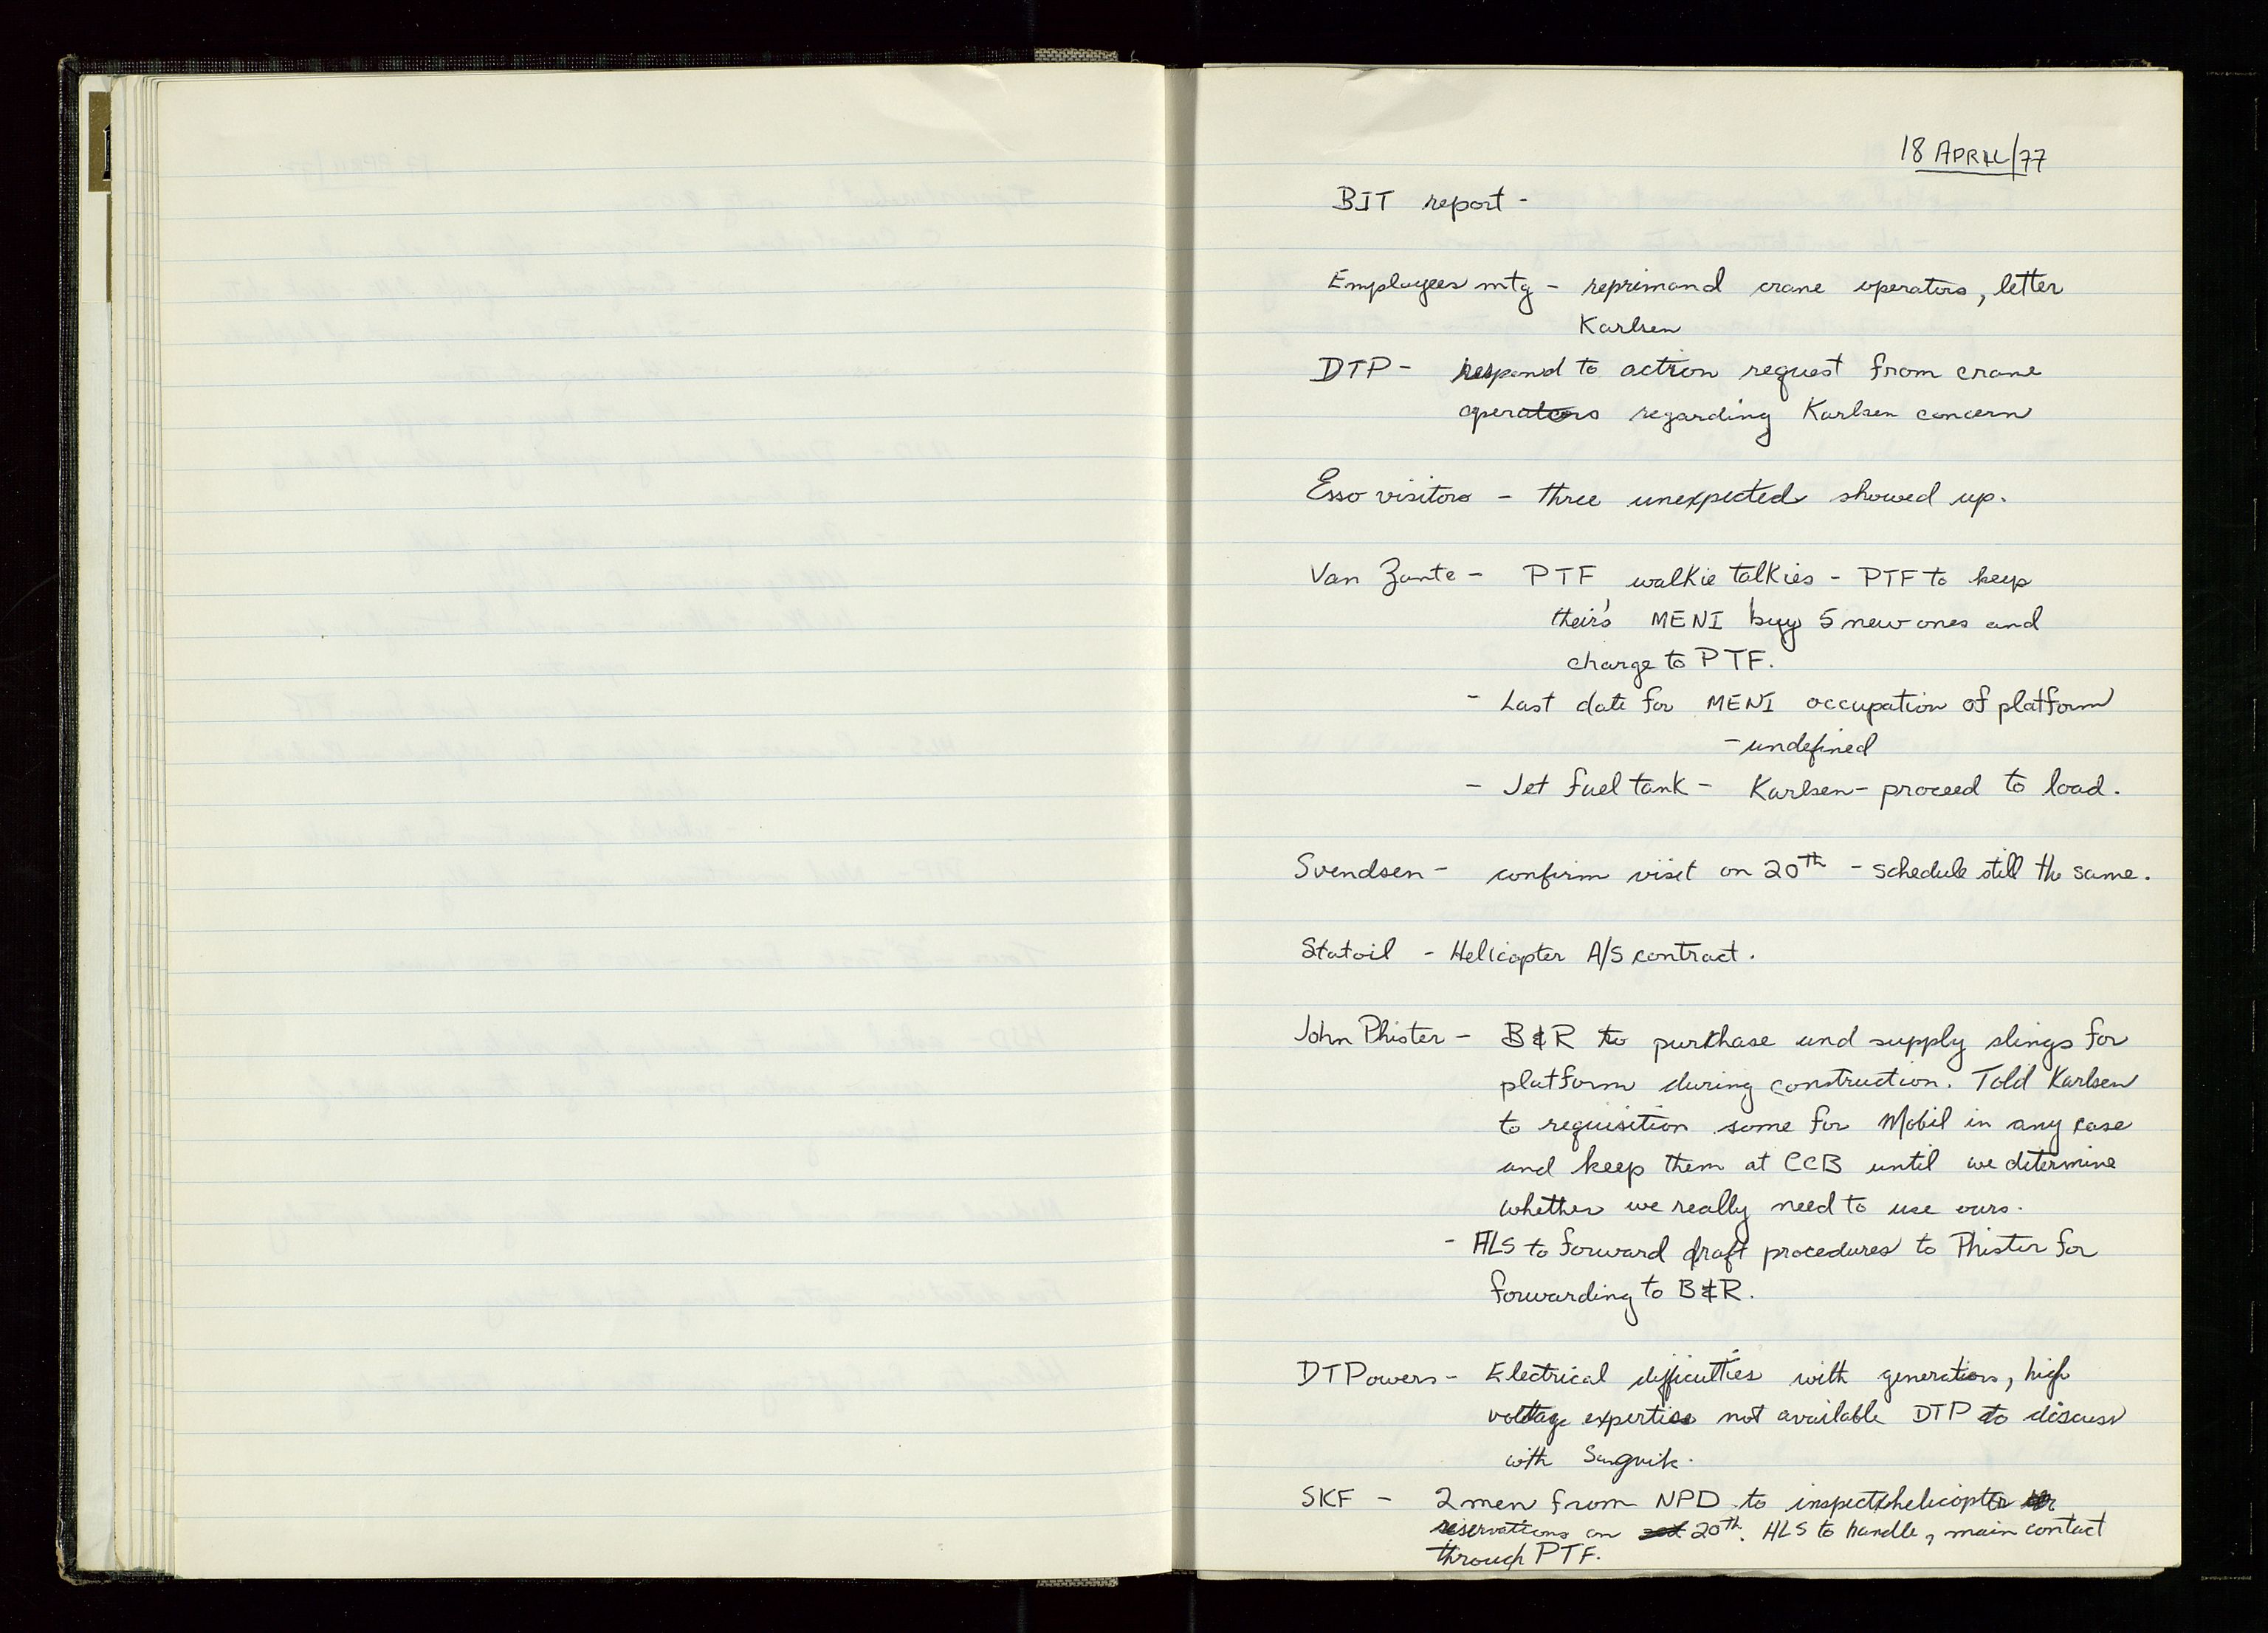 18 APRIL/77
BIT report -
Employees mtg - reprimand crane operators, letter
Karlsen
DTP - respond to action request from crane
operators regarding Karlsen concern
Esso visitors - three unexpected showed up.
Van Zante - PTF walkie talkies - PTF to keep
their's MENI buy 5 new ones and
charge to PTF.
- Last date for MENI occupation of platform
- undefined
- Jet fuel tank - Karlsen - proceed to load.
Svendsen - confirm visit on 20th - schedule still the same.
Statoil - Helicopter A/S contract.
John Phister - B&R to purchase and supply slings for
platform during construction. Told Karlsen
to requisition some for Mobil in any case
and keep them at CCB until we determine
whether we really need to use ours.
- HLS to forward draft procedures to Phister for
forwarding to B&R.
DTPowers - Electrical difficulties with generators, high
voltage expertise not available DTP to discuss
with
SKF - 2 men from NPD to inspect helicopter
reservations on 20th. HLS to handle, main contact
through PTF.